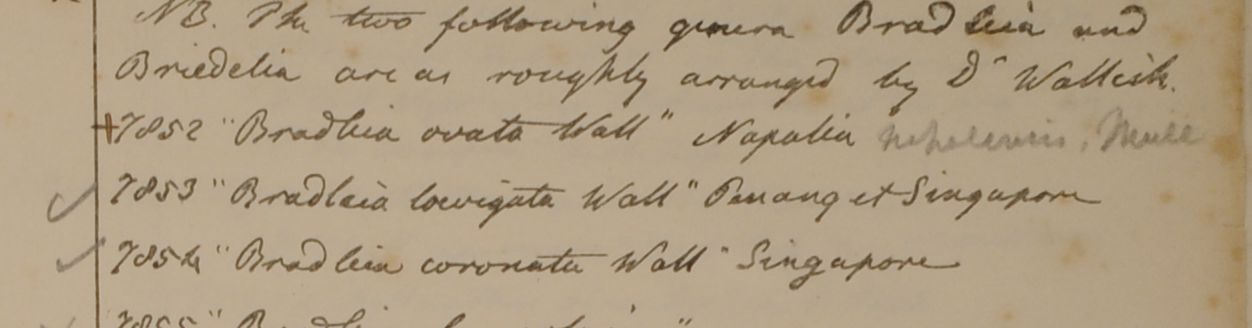 NB. The two following genera Bradleia and
Briedelia are as roughly arranged by Dr Wallich.
+7852 "Bradleia ovata Wall" Napalia nepalensis, Muell
7853 "Bradleia laevigata Wall" Penang et Singapore
7854 "Bradleia coronata Wall" Singapore
7855 "